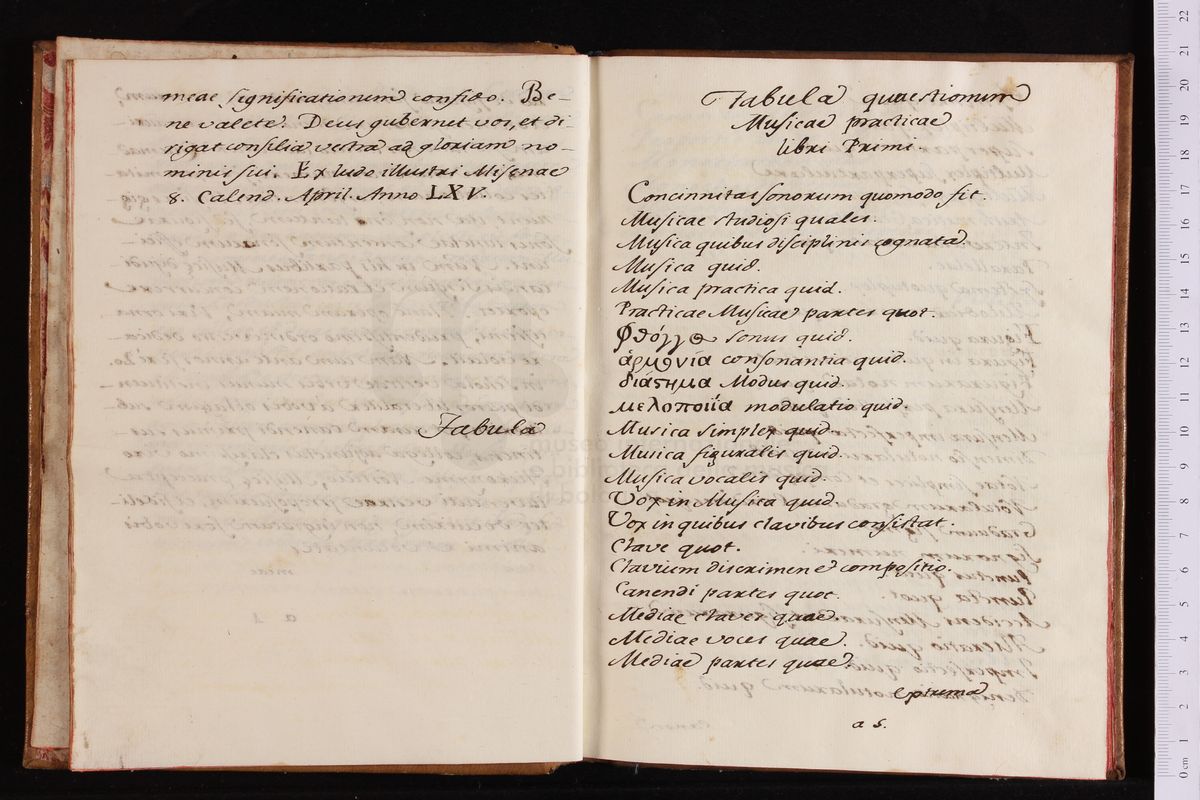 meae significationem confido. Be-
ne valete. Deus gubernet vos, et di-
rigat consilia vestra ad gloriam no-
minis sui. Ex ludo illustri Misenae
8. Calend. April. Anno LXV.
Tabula
Tabula quaestionum
Musicae practicae
libri Primi.
Concinnitas sonorum quomodo fit.
Musicae studiosi quales.
Musica quibus disciplinis cognata.
Musica quid.
Musica practica quid.
Practicae Musicae partes quot.
Φθόγγος sonus quid.
αρμονία consonantia quid.
διάστημα Modus quid.
μελοποιΐα modulatio quid.
Musica simplex quid.
Musica figuralis quid.
Musica vocalis quid.
Vox in Musica quid.
Vox in quibus clavibus consistat.
Clave quot.
Clavium discrimen & compositio.
Canendi partes quot.
Mediae claves quae.
Mediae voces quae.
Mediae partes quae.
a 5.
0 cm 1 2 3 4 5 6 7 8 9 10 11 12 13 14 15 16 17 18 19 20 21 22